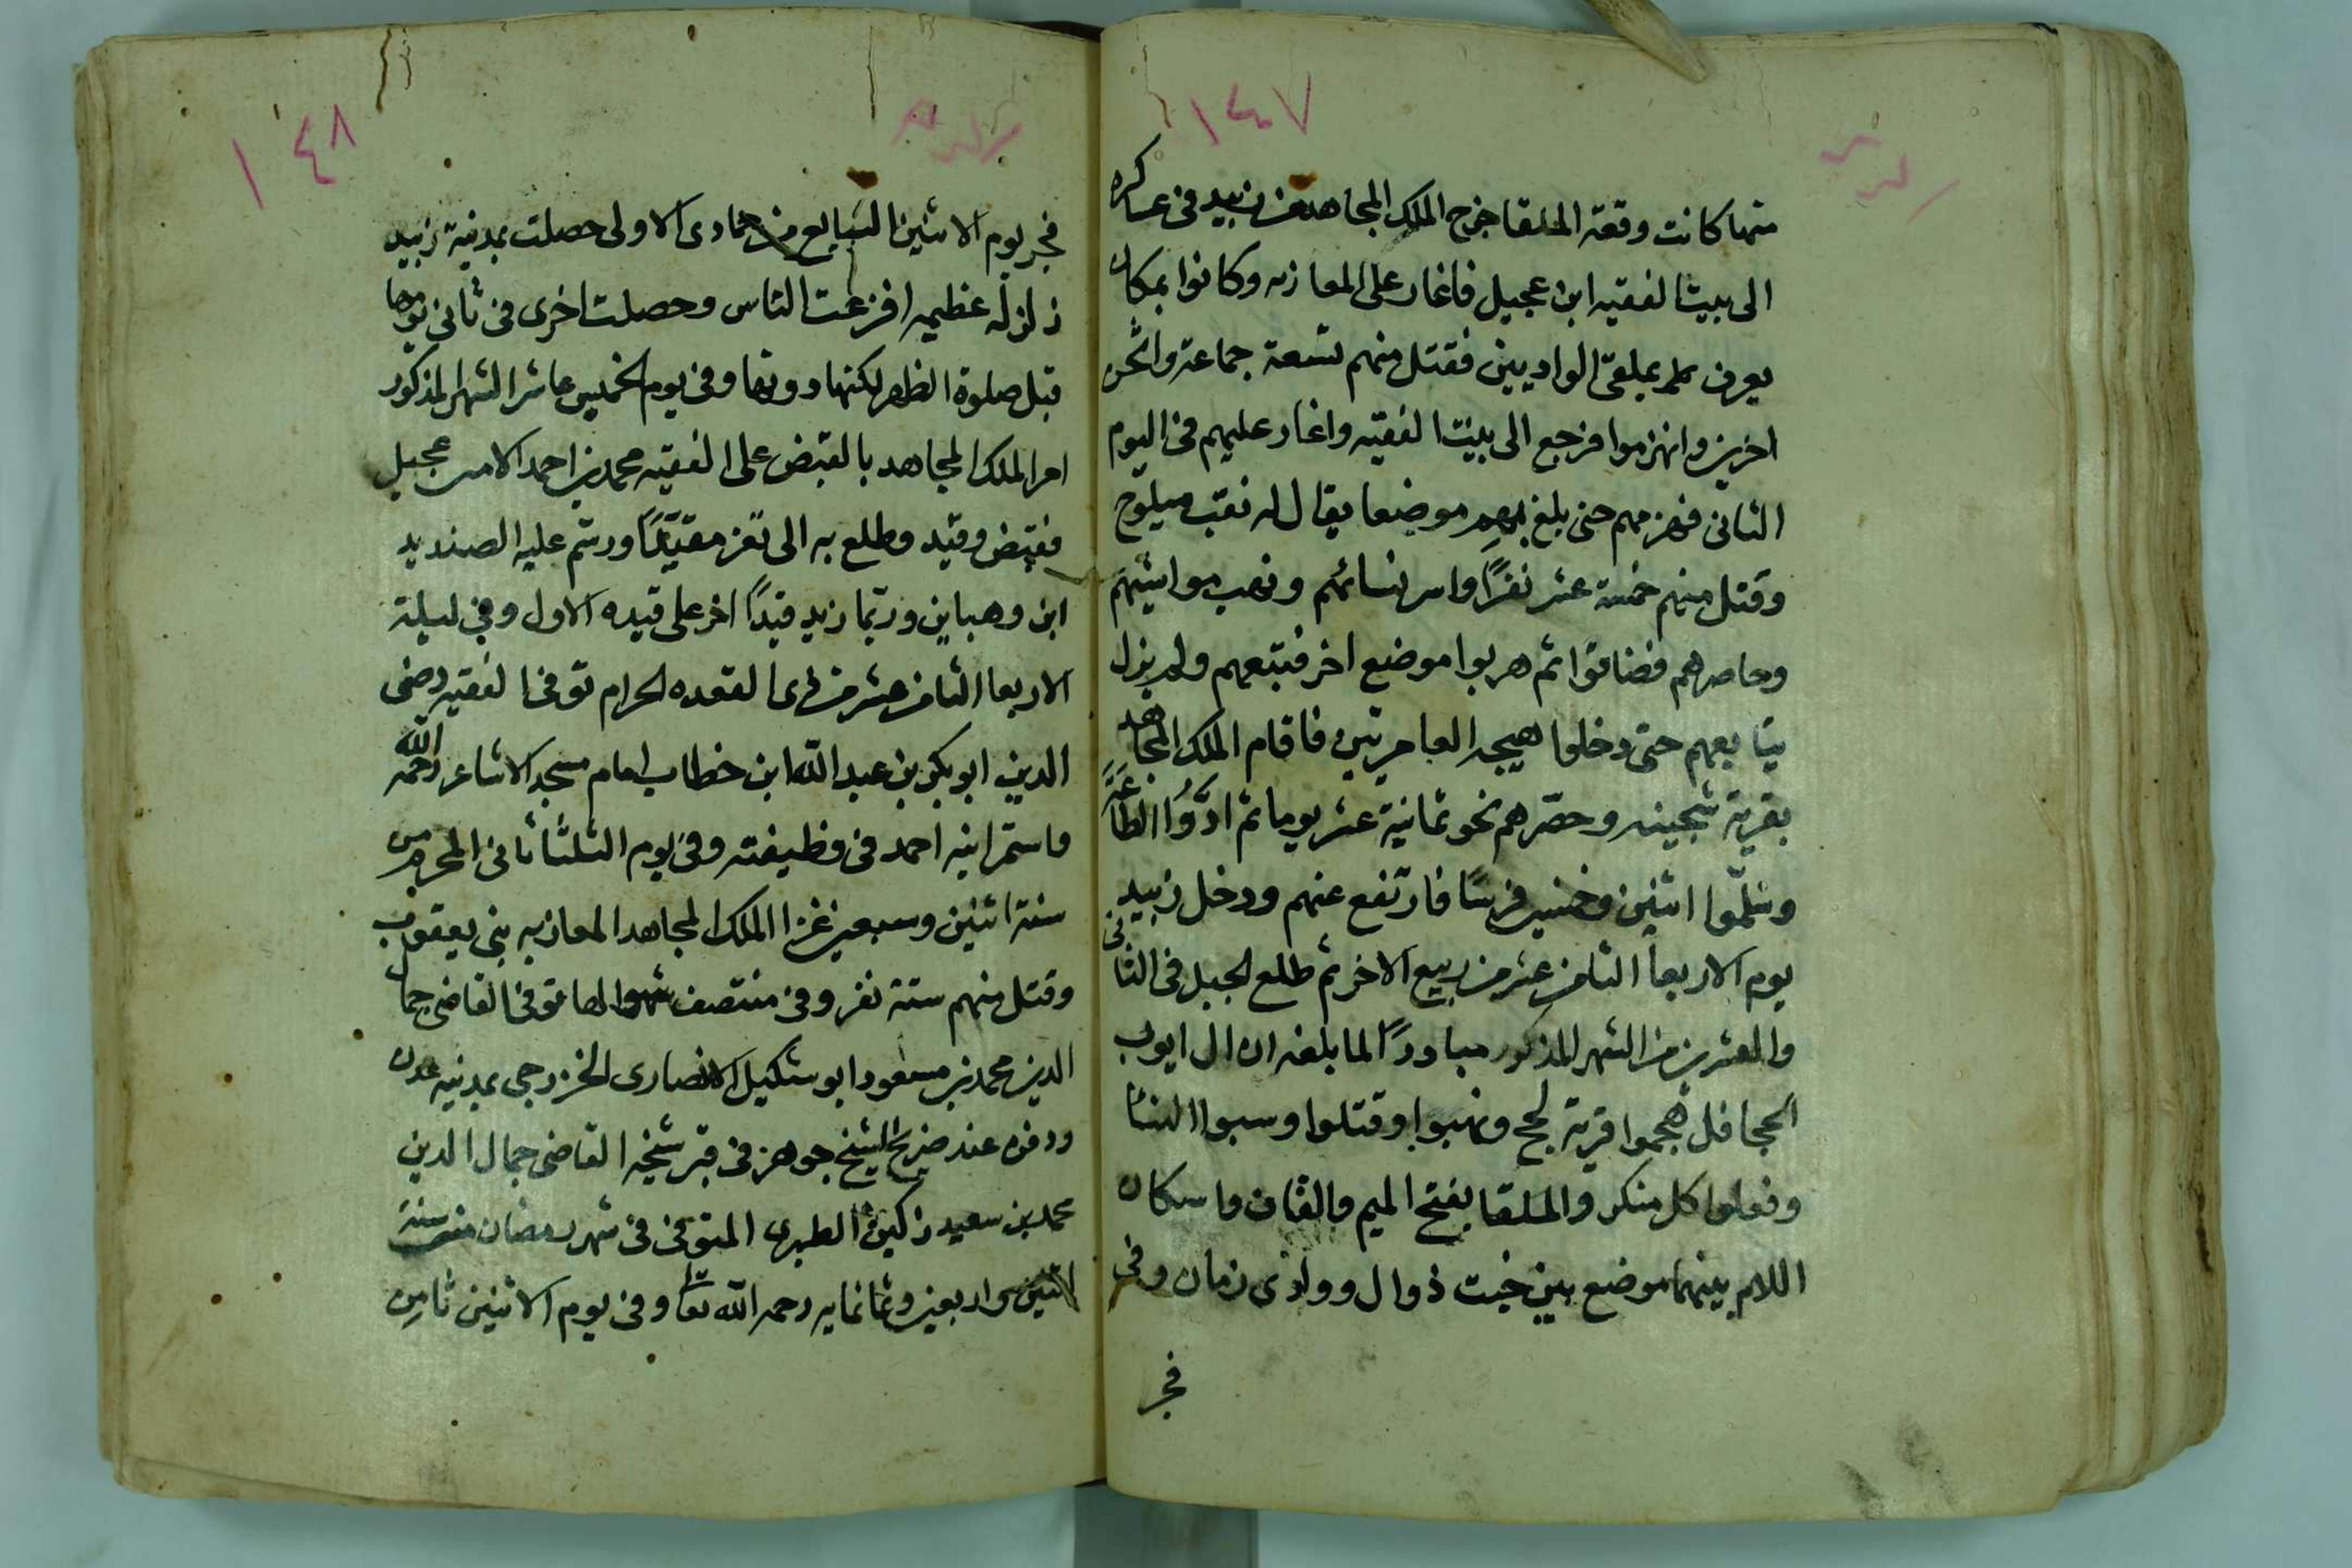 ١٤٧
منها كانت وقعة الملقا خرج الملك المجاهد من زبيد فى عساكره
الى بيت الفقيه ابن عجيل فاغار على المعازبه وكانوا بمكان
يعرف بملقى الواديين فقتل منهم تسعة جماعة واثخن
اخرين وانهزموا فرجع الى بيت الفقيه واغار عليهم فى اليوم
الثانى فهزمهم حتى بلغ بهم موضعا يقال له نقب
وقتل منهم خمسة عشر نفرًا واسر نسائهم ونهب مواشيهم
وحاصرهم فضاقوا ثم هربوا موضع اخر فتبعهم ولم يزل
يتابعهم حتى دخلوا هيجه العامريين فاقام الملك المجاهد
بقرية شجينه وحصّرهم نحو ثمانية عشر يوما ثم ادَّوُا الطاعَةَ
وسَلّموا اثنين وخمسين فرسًا فارتفع عنهم ودخل زبيد
يوم الاربعا الثامن عشر من ربيع الاخر ثم طلع الجبل فى الثانى
والعشرين من الشهر المذكور مبادرًا لما بلغه ان ال ايوب
الحجافل هجموا قرية لحج ونهبوا وقتلوا وسبوا النسا
وفعلوا كل منكر والملقا بفتح الميم والقاف واسكان
اللام بينهما موضع بين خبت ذوال ووادى رمان وفى
فجر
١٤٨
فجر يوم الاثنين السابع من جمادى الاولى حصلت بمدينة زبيد
زلزله عظيمه افزعت الناس وحصلت اخرى فى ثانى يومها
قبل صلوة الظهر لكنها دونها وفى يوم الخميس عاشر الشهر المذكور
امر الملك المجاهد بالقبض على الفقيه محمد بن احمد الامن عجيل
فقبض وقيّد وطلع به الى تعز مقيّدًا ورسّم عليه الصنديد
ابن وهباين وربّما زيد قيدًا اخر على قيده الاول وفى ليلة
الاربعا الثامن عشر من ذى القعده الحرام توفى الفقيه رضى
الدين ابو بكر بن عبد اللّه ابن خطاب امام مسجد الاشاعر رحمه اللّه
واستمر ابنه احمد فى وظيفته وفى يوم الثلثا ثانى المحرم من
سنة اثنين وسبعين غزا الملك المجاهد المعازبه بنى يعقوب
وقتل منهم ستة نفر وفى منتصف توفى القاضى جمال
الدين محمد بن مسعود ابو شكيل الانصارى الخزرجى بمدينه عدن
ودفن عند ضريح الشيخ جوهر فى قبر شيخه القاضى جمال الدين
محمد بن سعيد ابن كبّن الطبرى المتوفى فى شهر رمضان من سنة
اثنين واربعين وثمانمايه رحمه الله تعا وفى يوم الاثنين ثامن